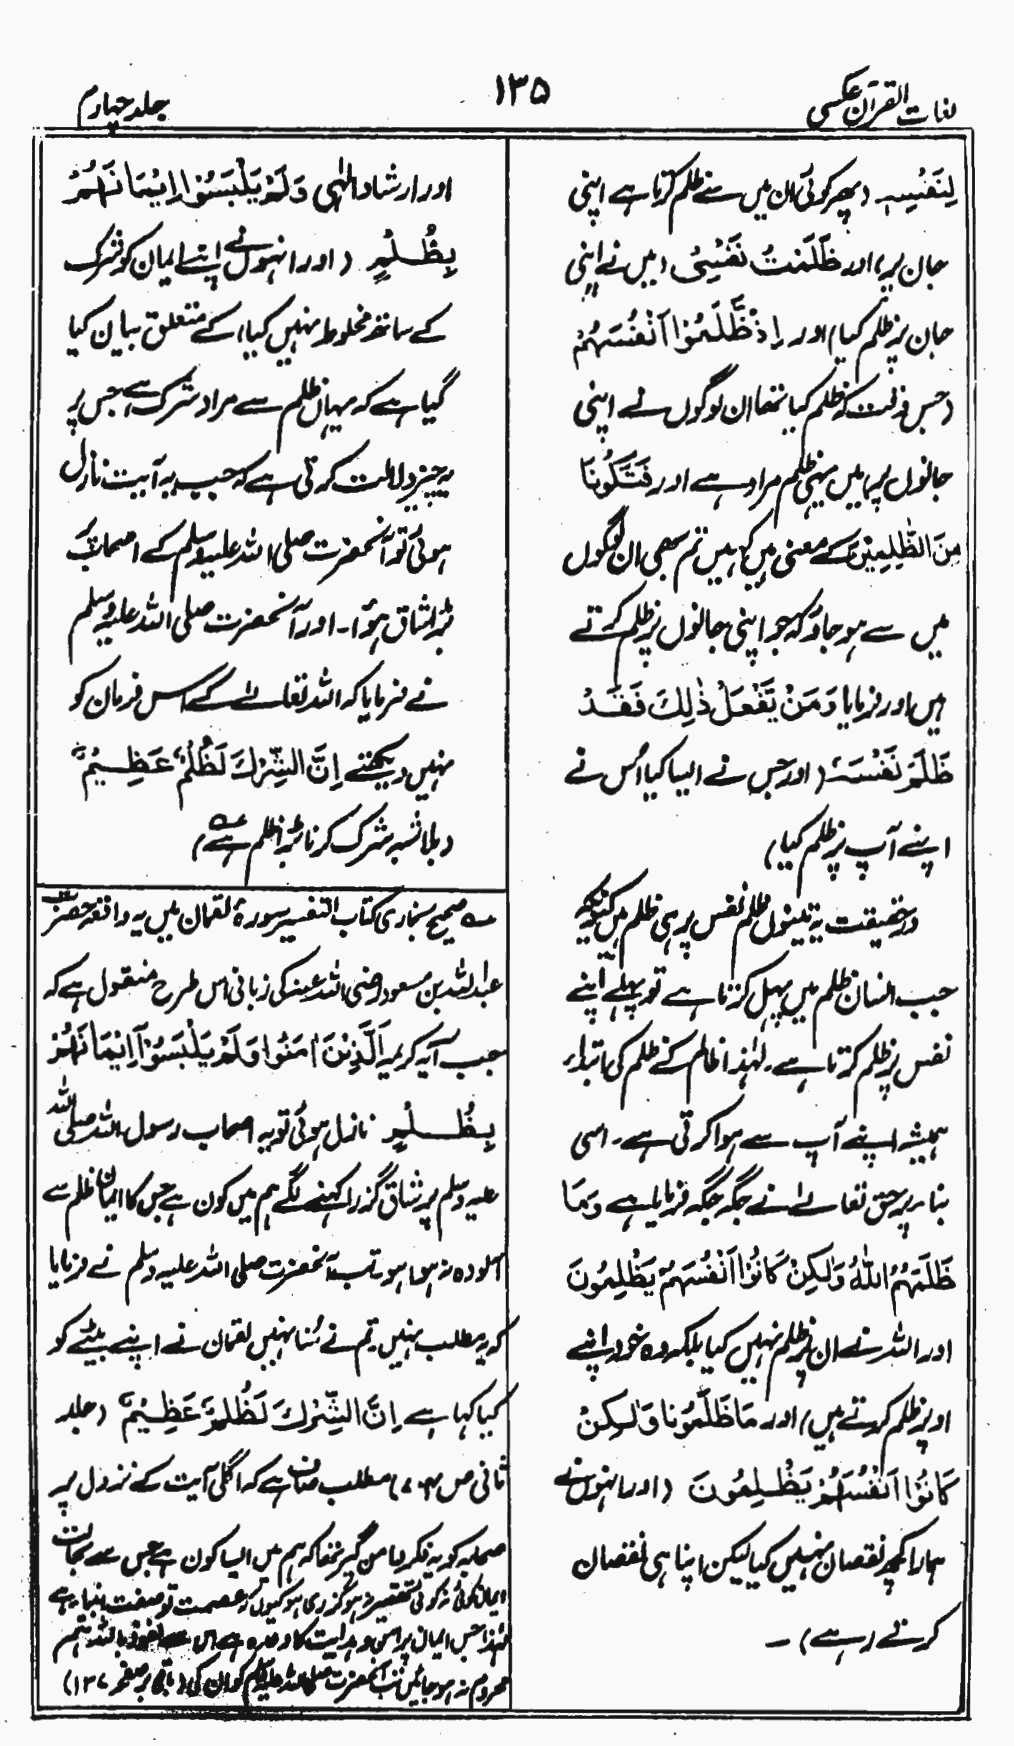 لغات القرآن عکسی
۱۳۵
جلد چہارم
لِنَفْسِهٖ (پھر کوئی ان میں سے ظلم کرتا ہے اپنی
جان پر) اور ظَلَمْتُ نَفْسِیْ (میں نے اپنی
جان پر ظلم کیا) اور اِذْ ظَّلَمُوْٓا اَنْفُسَهُمْ
(جس وقت کہ ظلم کیا تھا ان لوگوں نے اپنی
جانوں پر) میں یہی ظلم مراد ہے اور فَتَكُوْنَا
مِنَ الظّٰلِمِیْنَ کے معنی ہیں کہ ہیں تم بھی ان لوگوں
میں سے ہو جاؤ کہ جو اپنی جانوں پر ظلم کرتے
ہیں اور فرمایا وَ مَنْ یَّفْعَلْ ذٰلِكَ فَقَدْ
ظَلَمَ نَفْسَهٗ (اور جس نے ایسا کیا اُس نے
اپنے آپ پر ظلم کیا)
درحقیقت یہ تینوں ظلم نفس پر ہی ظلم ہیں کیونکہ
جب انسان ظلم میں پہل کرتا ہے تو پہلے اپنے
نفس پر ظلم کرتا ہے۔ لہٰذا ظالم کے ظلم کی ابتداء
ہمیشہ اپنے آپ سے ہوا کرتی ہے۔ اسی
بناء پر حق تعالےٰ نے جگہ جگہ فرمایا ہے وَمَا
ظَلَمَهُمُ اللّٰهُ وَلٰكِنْ كَانُوْٓا اَنْفُسَهُمْ یَظْلِمُوْنَ
اور اللہ نے ان پر ظلم نہیں کیا بلکہ وہ خود اپنے
اوپر ظلم کرتے ہیں) اور مَا ظَلَمُوْنَا وَلٰكِنْ
كَانُوْٓا اَنْفُسَهُمْ یَظْلِمُوْنَ (اور انہوں نے
ہمارا کچھ نقصان نہیں کیا لیکن اپنا ہی نقصان
کرتے رہے) ۔
اور ارشاد الٰہی وَلَمْ یَلْبِسُوْٓا اِیْمَانَهُمْ
بِظُلْمٍ (اور انہوں نے اپنے ایمان کو شرک
کے ساتھ مخلوط نہیں کیا) کے متعلق بیان کیا
گیا ہے کہ یہاں ظلم سے مراد شرک ہے جس پر
یہ چیز دلالت کرتی ہے کہ جب یہ آیت نازل
ہوئی تو آنحضرت صلی اللہ علیہ وسلم کے اصحاب پر
بڑا شاق ہوا۔ اور آنحضرت صلی اللہ علیہ وسلم
نے فرمایا کہ اللہ تعالےٰ کے اس فرمان کو
نہیں دیکھتے اِنَّ الشِّرْكَ لَظُلْمٌ عَظِیْمٌ
(بلاشبہ شرک کرنا بڑا ظلم ہے)
صحیح بخاری کتاب التفسیر سورۂ لقمان میں یہ واقعہ حضرت
عبداللہ بن مسعود رضی اللہ عنہ کی زبانی اس طرح منقول ہے کہ
جب آیہ کریمہ اَلَّذِیْنَ اٰمَنُوْا وَلَمْ یَلْبِسُوْٓا اِیْمَانَهُمْ
بِظُلْمٍ نازل ہوئی تو یہ اصحاب رسول اللہ صلی اللہ
علیہ وسلم پر شاق گزرا کہنے لگے ہم میں کون ہے جس کا ایمان ظلم سے
آلودہ نہ ہوا ہو تب آنحضرت صلی اللہ علیہ وسلم نے فرمایا
کہ یہ مطلب نہیں تم نے سُنا نہیں لقمان نے اپنے بیٹے کو
کیا کہا ہے اِنَّ الشِّرْكَ لَظُلْمٌ عَظِیْمٌ (جلد
ثانی ص ۷۰۴) مطلب صاف ہے کہ اگلی آیت کے نزول پر
صحابہ کو یہ فکر دامن گیر تھا کہ ہم میں ایسا کون ہے جس سے بحالت
ایمان کوئی نہ کوئی تقصیر نہ ہو گزری ہو کیونکہ عصمت تو صفت انبیاء ہے
لہٰذا جس ایمان پر امن و ہدایت کا وعدہ ہے اس سے نعوذ باللہ ہم
محروم نہ ہو جائیں تب آنحضرت صلی اللہ علیہ وسلم کو ان کی (باقی بر صفحہ ۱۳۶)